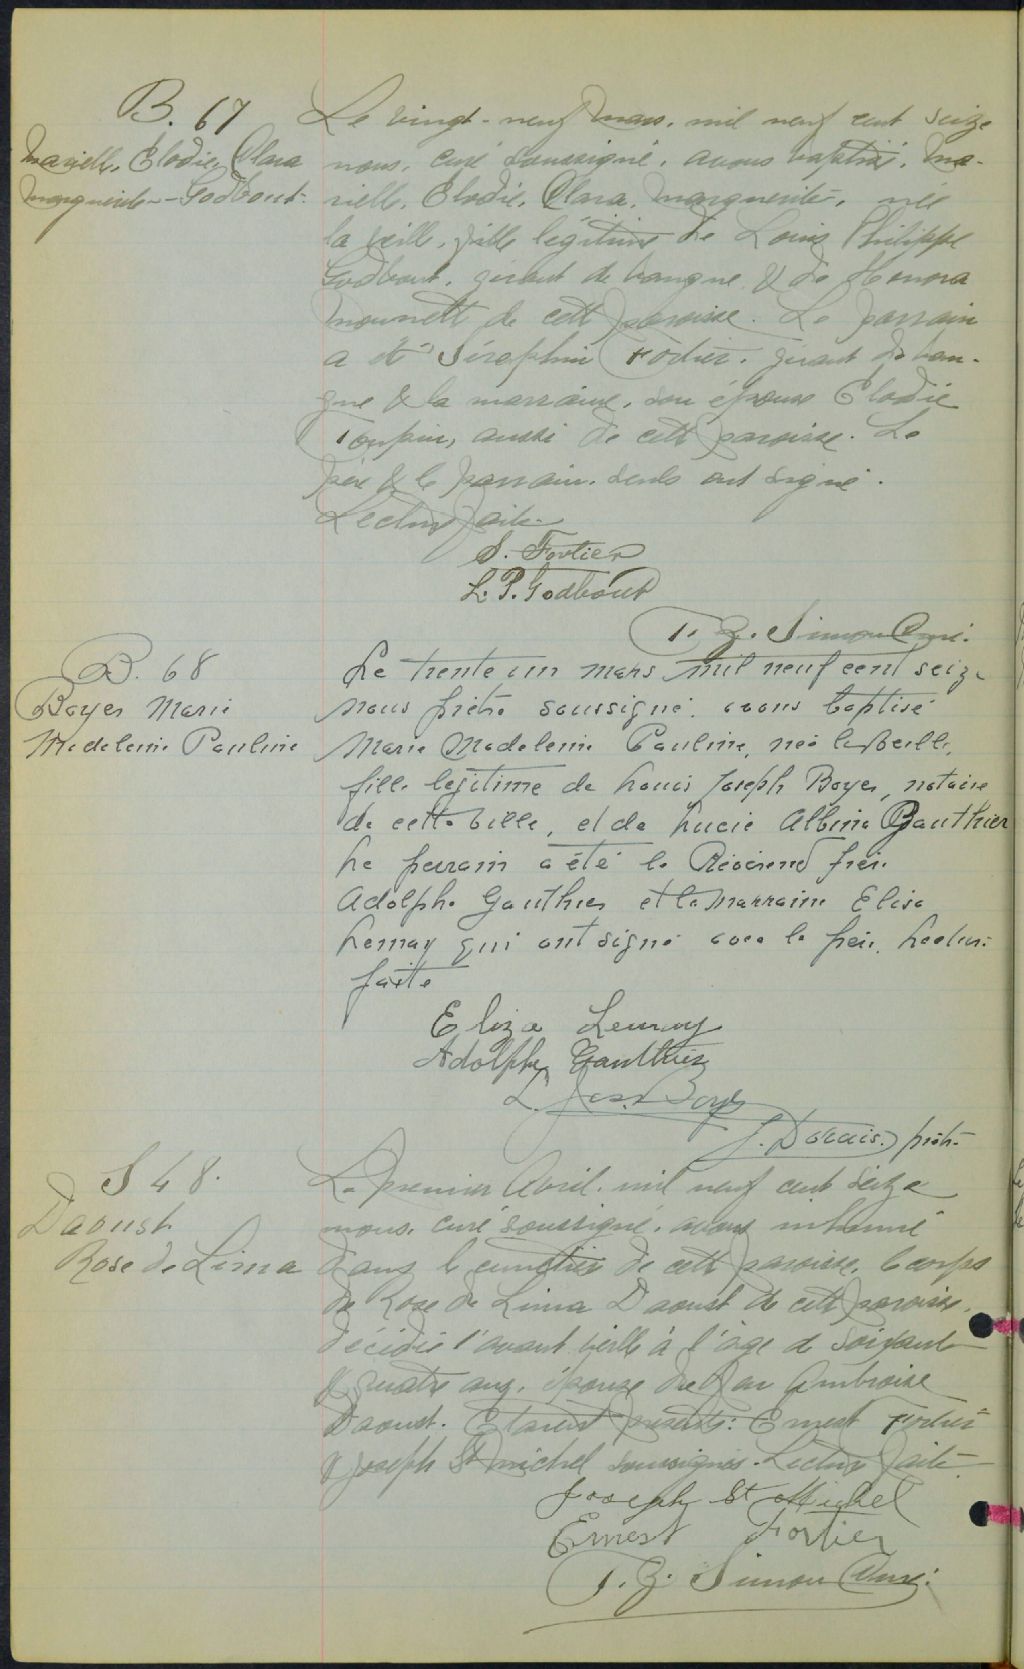 B. 67
Marielle, Elodie, Clara
Marguerite - Godbout.
Le vingt-neuf mars, mil neuf cent seize
nous, curé soussigné, avons baptisé, Ma-
rielle, Elodie, Clara, Marguerite, née
la veille, fille légitime de Louis Philippe
Godbout, gérant de banque & de Honora
de cette paroisse. Le parrain
a été Séraphin Fortier, gérant de ban-
que & la marraine, son épouse Elodie
Toupin, aussi de cette paroisse. Le
père & le parrain seuls ont signé.
Lecture faite.
S. Fortier
L. P. Godbout
T. Z. Simon Curé.
B. 68
Boyer Marie
Madeleine Pauline
Le trente un mars mil neuf cent seize
nous prêtre soussigné avons baptisé
Marie Madeleine Pauline, née la veille,
fille légitime de Louis Joseph Boyer, notaire
de cette ville, et de Lucie Albina Gauthier
Le parrain a été le Révérend frère
Adolphe Gauthier et la marraine Elisa
Lemay qui ont signé avec le père. Lecture
faite
Eliza Lemay
Adolphe Gauthier
L. Jos. Boyer
J. Dorais, prêtre
S 48.
Daoust
Rose de Lima
Le premier Avril, mil neuf cent seize
nous, curé soussigné, avons inhumé
dans le cimetière de cette paroisse, le corps
de Rose de Lima Daoust de cette paroisse,
décédée l'avant veille à l'âge de soixante
& quatre ans, épouse de feu Ambroise
Daoust. Etaient présents: Ernest Fortier
& Joseph St Michel soussignés. Lecture faite.
Joseph St Michel
Ernest Fortier
T. Z. Simon Curé.